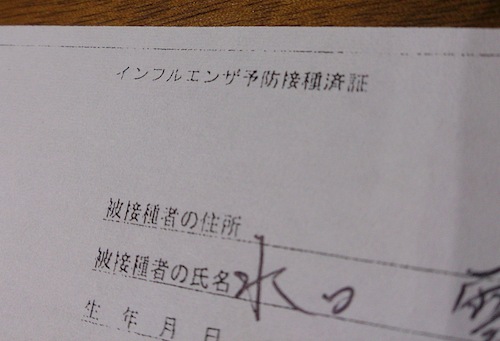 インフルエンザ予防接種済証
被接種者の住所
被接種者の氏名 水口
生年月日